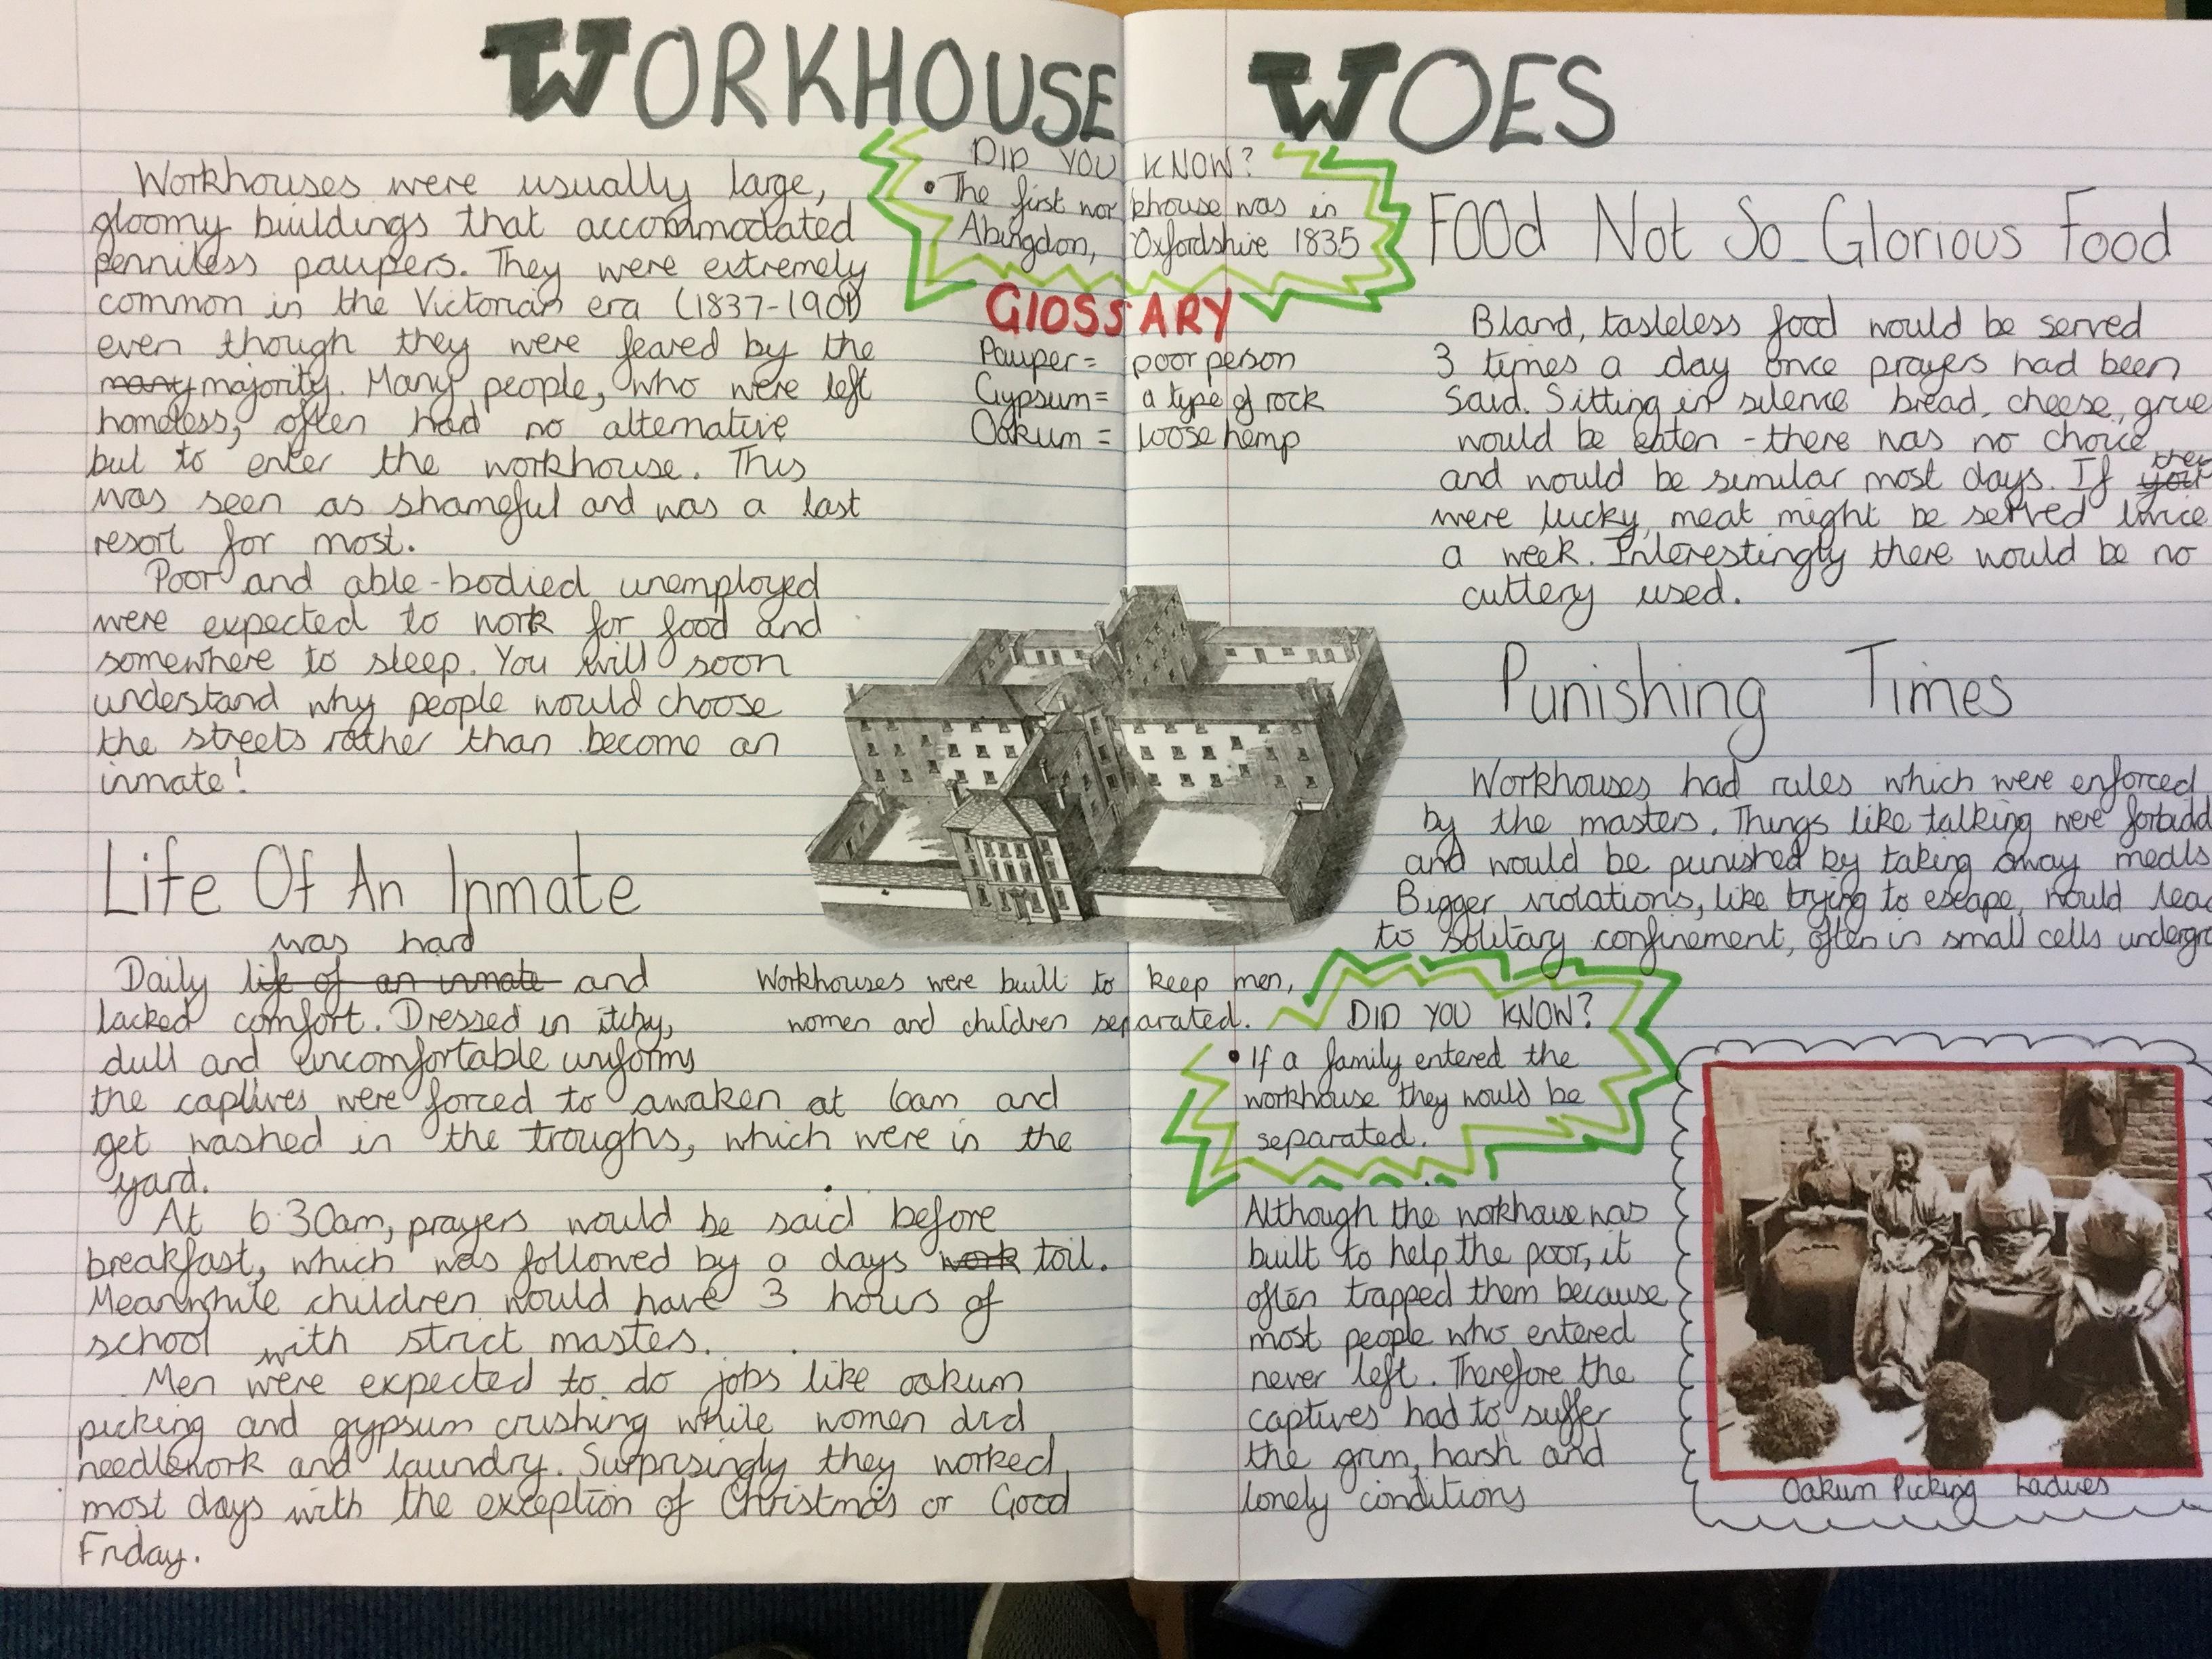 WORKHOUSE WOES
Workhouses were usually large,
gloomy buildings that accommodated
penniless paupers. They were extremely
common in the Victorian era (1837-1901)
even though they were feared by the
many majority. Many people, who were left
homeless, often had no alternative
but to enter the workhouse. This
was seen as shameful and was a last
resort for most.
Poor and able-bodied unemployed
were expected to work for food and
somewhere to sleep. You will soon
understand why people would choose
the streets rather than become an
inmate!
Life Of An Inmate
was hard
Daily life of an inmate and
lacked comfort. Dressed in itchy,
dull and uncomfortable uniforms
the captives were forced to awaken at 6am and
get washed in the troughs, which were in the
yard.
At 6:30am, prayers would be said before
breakfast, which was followed by a days work toil.
Meanwhile children would have 3 hours of
school with strict masters.
Men were expected to do jobs like oakum
picking and gypsum crushing while women did
needlework and laundry. Surprisingly they worked
most days with the exception of Christmas or Good
Friday.
DID YOU KNOW?
• The first workhouse was in
Abingdon, Oxfordshire 1835
GlOSSARY
Pauper = poor person
Gypsum = a type of rock
Oakum = loose hemp
Workhouses were built to keep men,
women and children separated.
FOOd Not So Glorious Food
Bland, tasteless food would be served
3 times a day once prayers had been
said. Sitting in silence bread, cheese, grue
would be eaten - there was no choice
and would be similar most days. If you they
were lucky, meat might be served twice
a week. Interestingly there would be no
cuttery used.
Punishing Times
Workhouses had rules which were enforced
by the masters. Things like talking were forbidd
and would be punished by taking away meals
Bigger violations, like trying to escape, would lead
to solitary confinement, often in small cells undergro
DID YOU KNOW?
• If a family entered the
workhouse they would be
separated.
Although the workhouse was
built to help the poor, it
often trapped them because
most people who entered
never left. Therefore the
captives had to suffer
the grim, harsh and
lonely conditions
Oakum Picking Ladies